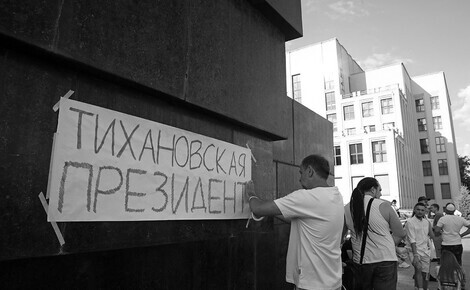 ТИХАНОВСКАЯ
ПРЕЗИДЕНТ